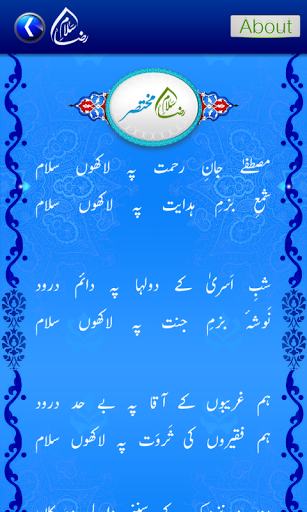 سلامِ رضا
About
مختصر سلامِ رضا
مصطفٰے جانِ رحمت پہ لاکھوں سلام
شمعِ بزمِ ہدایت پہ لاکھوں سلام
شبِ اَسریٰ کے دولہا پہ دائم درود
نَوشۂ بزمِ جنت پہ لاکھوں سلام
ہم غریبوں کے آقا پہ بے حد درود
ہم فقیروں کی ثَروَت پہ لاکھوں سلام